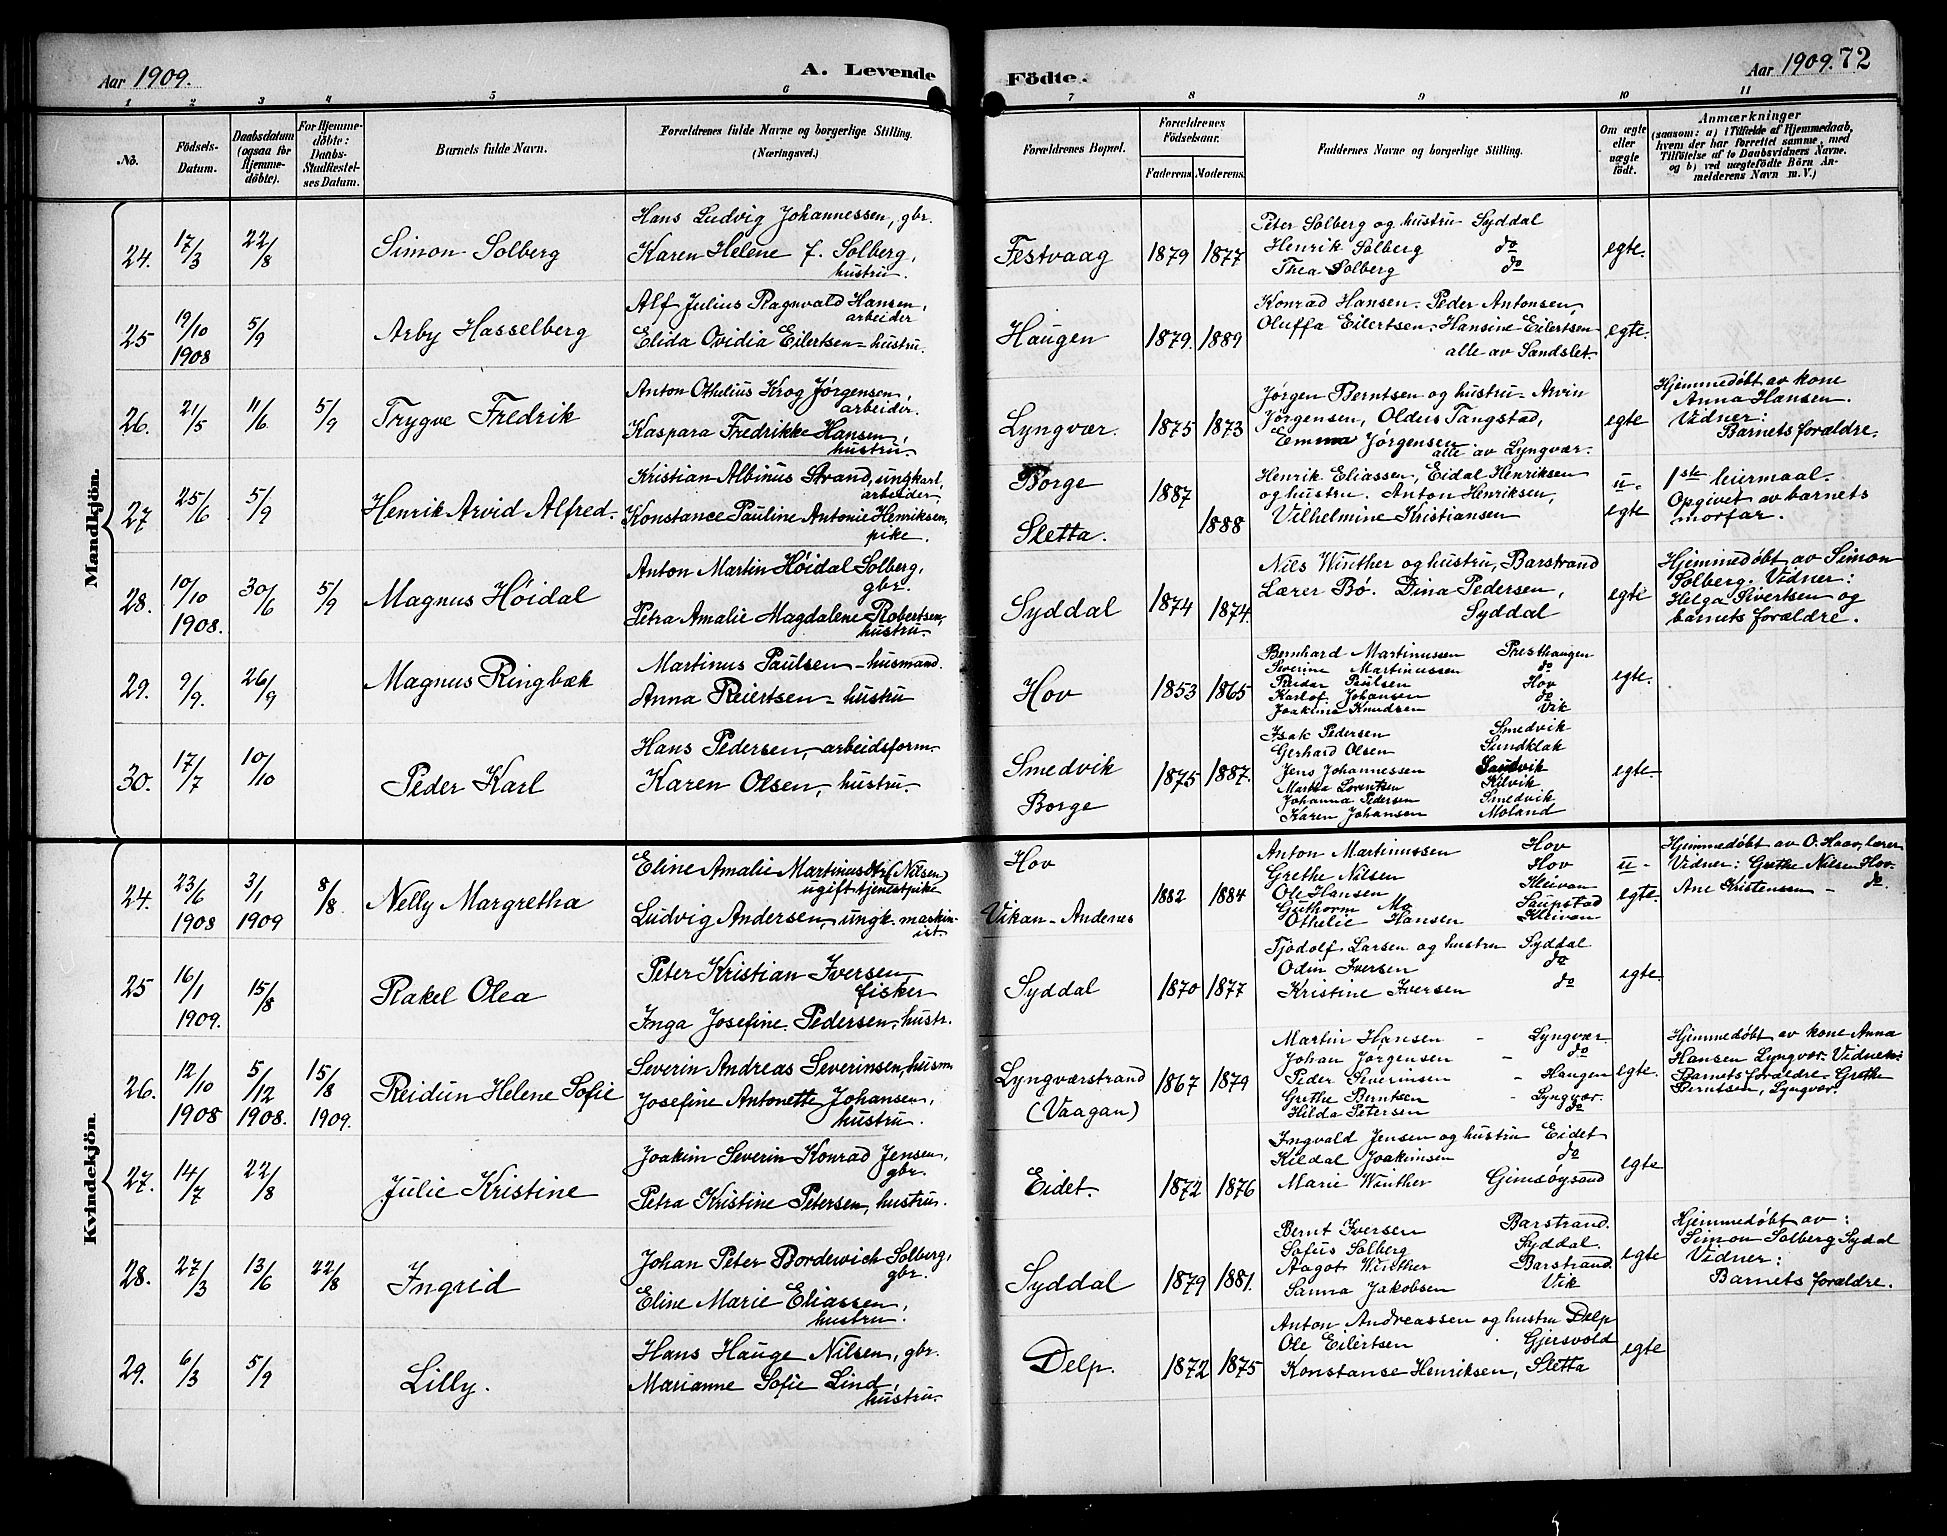 Aar 1909.
A. Levende
Födte.
Aar 1909. 72
1 2 3 4 5 6 7 8 9 10 11
No.
Födsels-
Datum.
Daabsdatum
(ogsaa for
Hjemme-
döbte).
For Hjemme-
döbte:
Daabs-
Stadfæstel-
ses Datum.
Barnets fulde Navn.
Forældrenes fulde Navne og borgerlige Stilling.
(Næringsvei.)
Forældrenes Bopæl.
Forældrenes
Födselsaar.
Faderens
Moderens
Faddernes Navne og borgerlige Stilling.
Om ægte
eller
uægte
født.
Anmærkninger
(saasom: a) i Tilfælde af Hjemmedaab,
hvem der har forrettet samme, med
Tilföielse af to Daabsvidners Navne.
og b) ved uægtefödte Börn An-
melderens Navn m. V.)
Mandkjön.
24. 17/3 22/8
Simon Solberg
Hans Ludvig Johannessen, gbr.
Karen Helene f. Solberg,
hustru.
Festvaag 1879 1877
Peter Solberg og hustru Syddal
Henrik Solberg do
Thea Solberg do
egte.
25 19/10 5/9
1908
Arby Hasselberg
Alf Julius Ragnvald Hansen,
arbeider
Elida Ovidia Eilertsen - hustru.
Haugen 1879. 1889
Konrad Hansen. Peder Antonsen,
Oluffa Eilertsen. Hansine Eilertsen
alle av Sandslet.
egte.
26. 21/5 11/6 5/9
Trygve Fredrik
Anton Othelius Krog Jørgensen,
arbeider.
Kaspara Fredrikke Hansen,
hustru.
Lyngvær. 1875 1873
Jørgen Berntsen og hustru - Arvin
Jørgensen, Oldus Tangstad,
Emma Jørgensen
alle av Lyngvær.
egte
Hjemmedøbt av kone
Anna Hansen.
Vidner:
Barnets forældre.
27 25/6 5/9
Henrik Arvid Alfred.
Kristian Albinus Strand, ungkarl,
arbeider,
Konstance Pauline Antonie Henriksen,
pike.
Borge
Sletta.
1887
1888
Henrik Eliassen, Eidal Henriksen
og hustru. Anton Henriksen,
Vilhelmine Kristiansen
u-
egte
1ste leiermaal.
Opgivet av barnets
morfar.
28. 10/10 30/6 5/9
1908.
Magnus Höidal
Anton Martin Höidal Solberg,
gbr.
Petra Amalie Magdalene Robertsen,
hustru.
Syddal 1874 1874.
Nils Winther og hustru, Barstrand
Lærer Bø. Dina Pedersen,
Syddal
egte
Hjemmedøbt av Simon
Solberg. Vidner:
Helga Sivertsen og
barnets forældre.
29. 9/9. 26/9
Magnus Ringbæk
Martinus Paulsen - husmand.
Anna Reiertsen - hustru
Hov 1853 1865
Bernhard Martinussen Presthaugen
Severine Martinussen do
Reidar Paulsen Hov
Karlof Johansen do
Joakima Knudsen Vik
egte.
30. 17/7 10/10
Peder Karl
Hans Pedersen, arbeidsform.
Karen Olsen, hustru.
Smedvik
Borge
1875 1887.
Isak Pedersen Smedvik
Gerhard Olsen Sundklak
Jens Johannessen Sandvik
Martha Lorentsen Kilvik
Johanna Pedersen Smedvik
Karen Johansen Moland
egte.
Kvindekjön.
24. 23/6 3/1 8/8
1908 1909
Nelly Margretha
Eline Amalie Martinusdtr (Nilsen)
ugift tjenestpike
Ludvig Andersen, ungk. maskin-
ist.
Hov
Vikan - Andenes
1882 1884
Anton Martinussen Hov
Grethe Nilsen Hov
Ole Hansen Kleivan
Guthorm Mo Saupstad
Othelie Hansen Kleivan
u-
egte.
Hjemmedøbt av O. Haav, lærer
Vidner: Grethe Nilsen Hov.
Ane Kristensen - do.
25 16/1 15/8
1909.
Rakel Olea
Peter Kristian Iversen
fisker
Inga Josefine Pedersen, hustr.
Syddal 1870 1877
Tjodolf Larsen og hustru Syddal
Odin Iversen do
Kristine Iversen do
egte.
26. 12/10 5/12 15/8
1908 1908. 1909.
Reidun Helene Sofie
Severin Andreas Severinsen, husm.
Josefine Antonette Johansen,
hustru.
Lyngværstrand
(Vaagan)
1867 1879
Martin Hansen - Lyngvær
Johan Jørgensen - do
Peder Severinsen - Haugen
Grethe Berntsen - Lyngvær.
Hilda Petersen do
egte.
Hjemmedøbt av kone Anna
Hansen Lyngvær. Vidner:
Barnets forældre. Grethe
Berntsen, Lyngvær.
27. 14/7 22/8
Julie Kristine
Joakim Severin Konrad Jensen,
gbr.
Petra Kristine Petersen, hustru.
Eidet. 1872 1876
Ingvald Jensen og hustru Eidet
Kildal Joakimsen do
Marie Winther Gimsøysand
egte
28. 27/3 13/6 22/8
Ingrid
Johan Peter Bordewich Solberg,
gbr.
Eline Marie Eliassen,
hustru.
Syddal 1879 1881.
Bernt Iversen Barstrand.
Sofus Solberg Syddal.
Aagot Winther Barstrand
Sanna Jakobsen Vik
egte
Hjemmedøbt av:
Simon Solberg Sydal
Vidner:
Barnets forældre.
29. 6/3 5/9
Lilly.
Hans Hauge Nilsen, gbr.
Marianne Sofie Lind,
hustru.
Delp. 1872 1875
Anton Andreassen og hustru Delp
Ole Eilertsen Gjersvold
Konstanse Henriksen, Sletta
egte